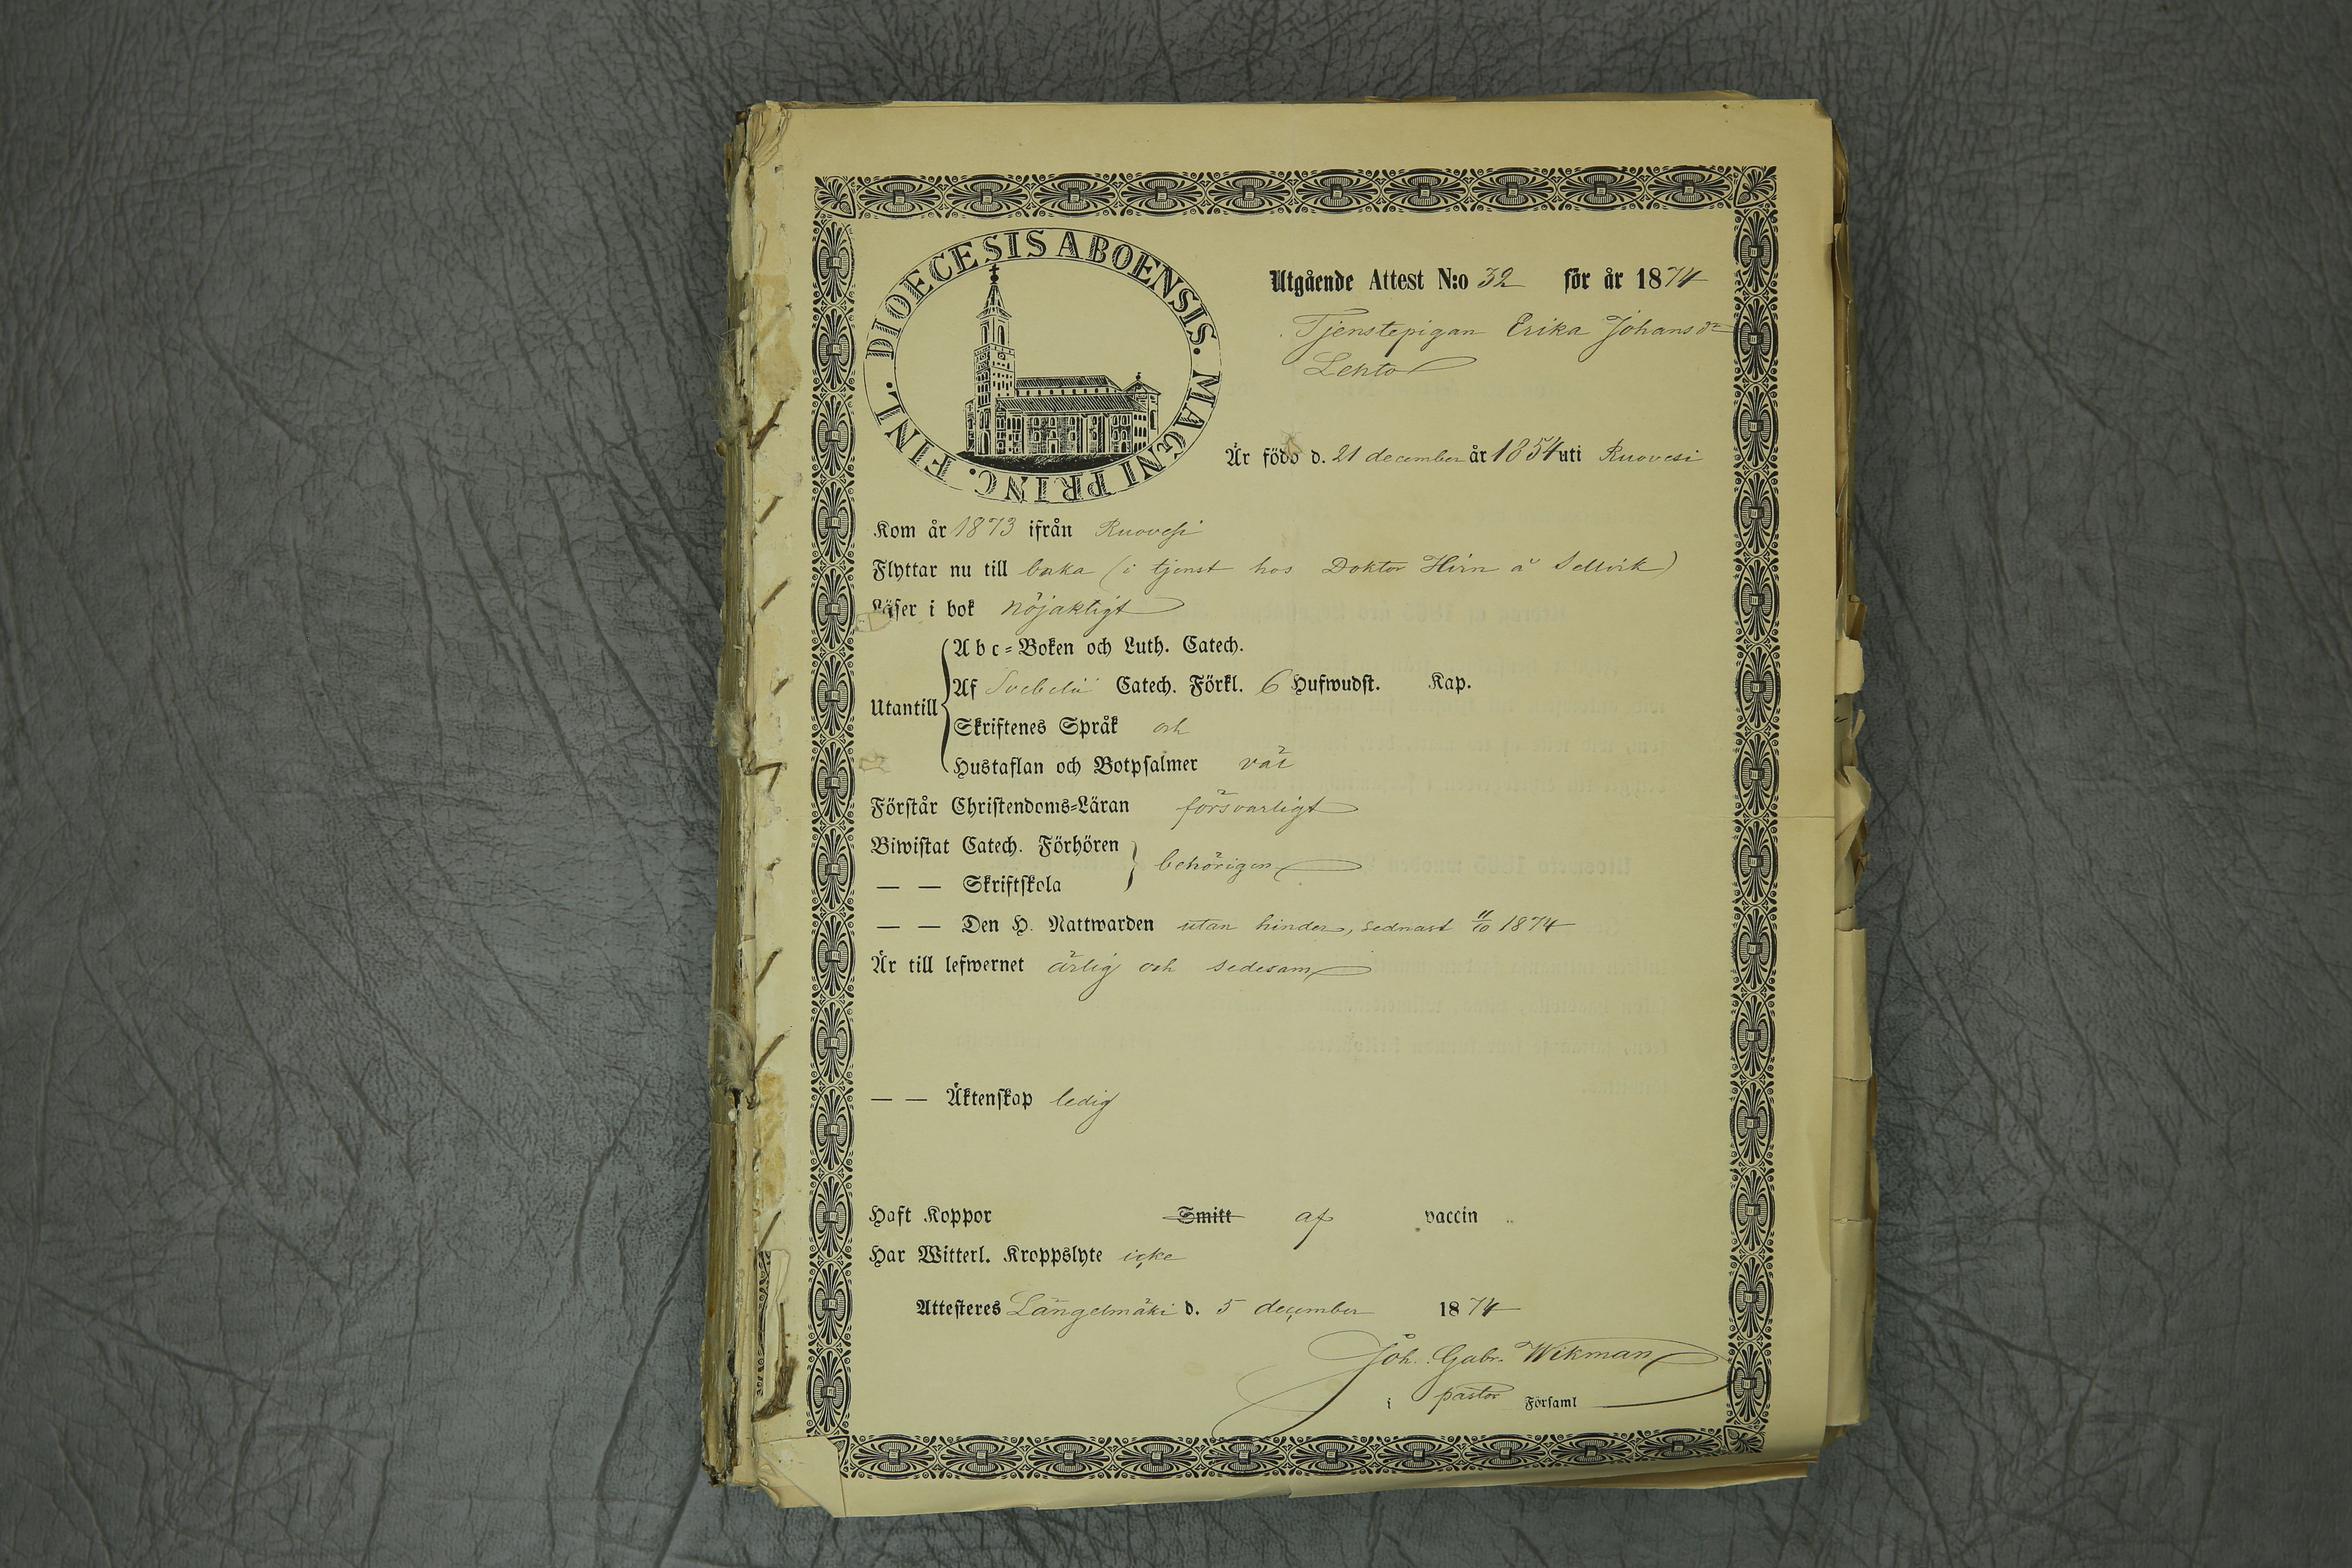 DIOECESIS ABOENSIS. MAGNI PRINC. FINL.
Utgående Attest N:o 32 för år 1874
Tjenstepigan Erika Johansdr
Lehto
Är född d. 21 december år 1854 uti Ruovesi
Kom år 1873 ifrån Ruovesi
Flyttar nu till baka (i tjenst hos Doktor Hirn å Sellvik)
Läser i bok nöjaktigt
Utantill
Abc-Boken och Luth. Catech.
Af Svebelii Catech. Förkl. 6 Hufwudst. Kap.
Skriftenes Språk och
Hustaflan och Botpsalmer
Förstår Christendoms-Läran försvarligt
Biwistat Catech. Förhören
behörigen
— — Skriftskola
— — Den H. Nattwarden utan hinder, sednast 11/10 1874
Är till lefwernet ärlig och sedesam
— — Äktenskap ledig
Haft Koppor Smitt af vaccin
Har Witterl. Kroppslyte icke
Attesteres Längelmäki d. 5 december 1874
Joh. Gabr. Wikman
i pastor Församl